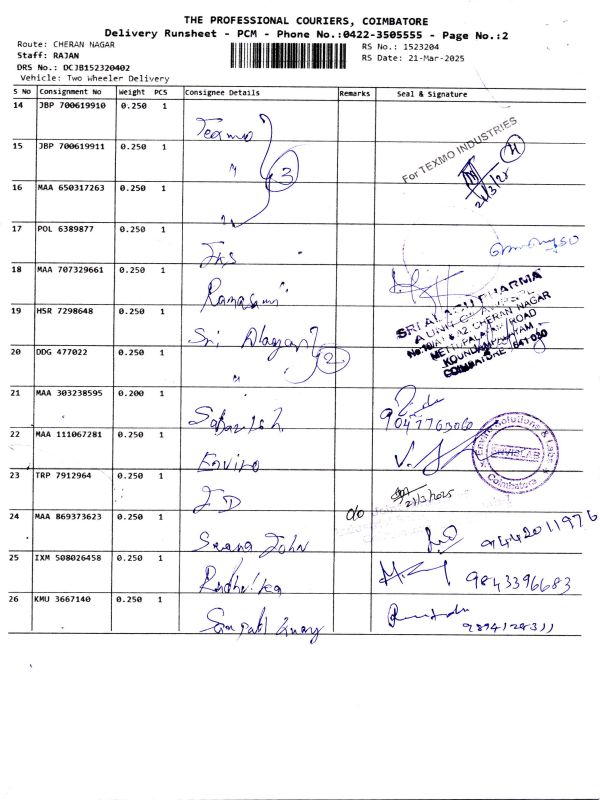 THE PROFESSIONAL COURIERS, COIMBATORE
Delivery Runsheet - PCM - Phone No.:0422-3505555 - Page No.:2
Route: CHERAN NAGAR
RS No.: 1523204
Staff: RAJAN
RS Date: 21-Mar-2025
DRS No.: DCJB152320402
Vehicle: Two Wheeler Delivery
S No Consignment No Weight PCS Consignee Details Remarks Seal & Signature
14 JBP 700619910 0.250 1 Texmo
For TEXMO INDUSTRIES
15 JBP 700619911 0.250 1 " 3
21/3/25
16 MAA 650317263 0.250 1 "
17 POL 6389877 0.250 1 JKS
18 MAA 707329661 0.250 1 Ramasami
19 HSR 7298648 0.250 1 Sri Alagan
SRI ALAGU PHARMA
CHERAN NAGAR
METTUPALAYAM ROAD
KOUNDAMPALAYAM
COIMBATORE - 641 030
20 DDG 477022 0.250 1 " 2
21 MAA 303238595 0.200 1
9047763060
22 MAA 111067281 0.250 1 Enviro
Enviro Solutions & Labs
ENVISLAB
Coimbatore
23 TRP 7912964 0.250 1 JD
21/3/2025
24 MAA 869373623 0.250 1 John
9442011976
25 IXM 508026458 0.250 1
9843396683
26 KMU 3667140 0.250 1